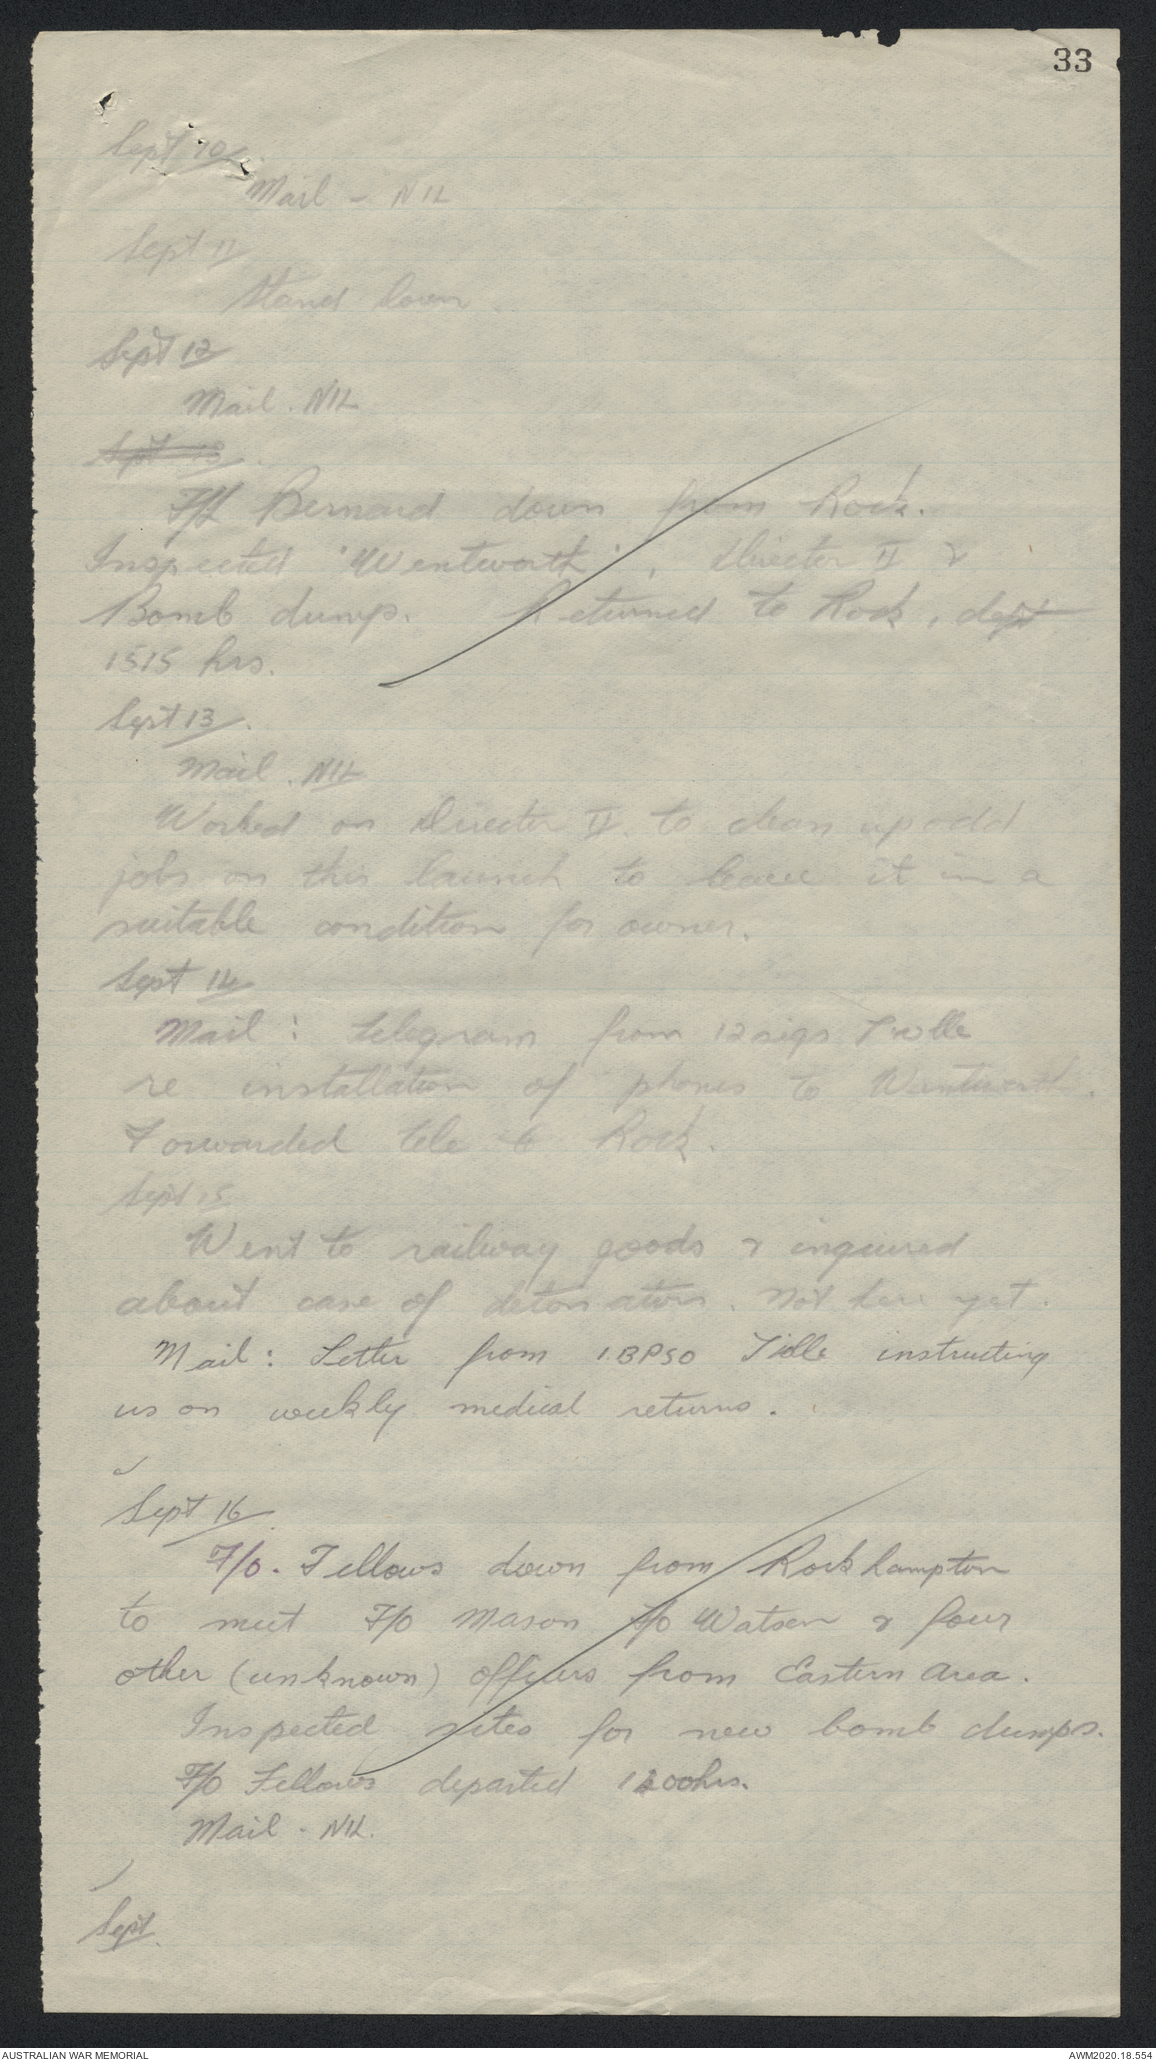 33
Sept 10
Mail - NIL
Sept 11
Stand Down.
Sept 12
Mail. NIL
Sept 13.
F/L Bernard down from Rock.
Inspected 'Wentworth', Director II &
Bomb dump. Returned to Rock, dept
1515 hrs.
Sept 13.
Mail. NIL
Worked on Director II to clean up odd
jobs on this launch to leave it in a
suitable condition for owner.
Sept 14
Mail: Telegram from 12 sigs T'ville
re installation of phones to Wentworth.
Forwarded tele to Rock.
Sept 15
Went to railway goods & inquired
about case of detonators. Not here yet.
Mail: Letter from 1.BPSO T'ville instructing
us on weekly medical returns.
Sept 16
F/O. Fellows down from Rockhampton
to meet F/O Mason F/O Watson & four
other (unknown) officers from Eastern Area.
Inspected sites for new bomb dumps.
F/O Fellows departed 1200hrs.
Mail - NIL.
Sept.
AUSTRALIAN WAR MEMORIAL
AWM2020.18.554